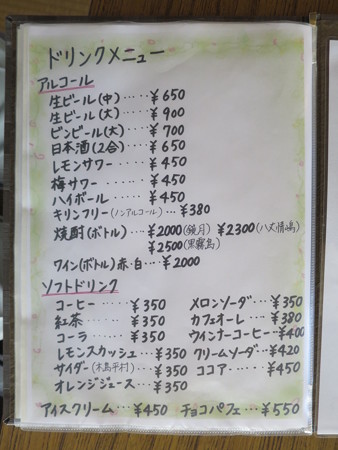 ドリンクメニュー
アルコール
生ビール(中)‥‥‥¥650
生ビール(大)‥‥¥900
ビンビール(大)‥‥¥700
日本酒(2合)‥‥¥650
レモンサワー‥‥¥450
梅サワー‥‥‥¥450
ハイボール‥‥‥¥450
キリンフリー(ノンアルコール)‥¥380
焼酎(ボトル)‥‥¥2000(鏡月) ¥2300(八丈情嶋)
¥2500(黒霧島)
ワイン(ボトル)赤・白‥¥2000
ソフトドリンク
コーヒー‥‥¥350
紅茶‥‥‥¥350
コーラ‥‥¥350
レモンスカッシュ‥‥¥350
サイダー(木島平村)‥‥¥350
オレンジジュース‥‥¥350
メロンソーダ‥‥¥350
カフェオーレ‥‥¥380
ウインナーコーヒー‥¥400
クリームソーダ‥¥420
ココア‥‥‥¥450
アイスクリーム‥‥¥450 チョコパフェ‥‥¥550